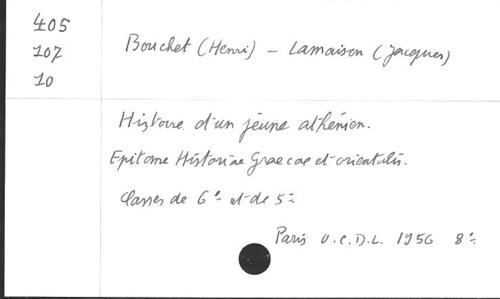 405
107
10
Bouchet (Henri) - Lamaison (Jacques)
Histoire d'un jeune athénien.
Epitome Historiae Graecae et orientalis.
Classes de 6e et de 5e
Paris U.C.D.L. 1956 8°